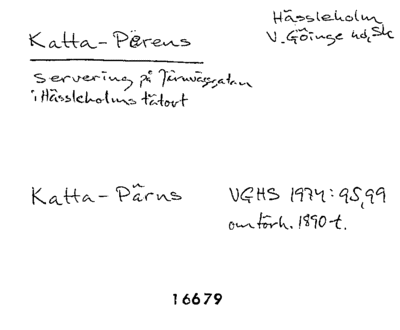 Katta-Pärens
Hässleholm
V. Göinge hd, Sk
servering på Järnvägsgatan
i Hässleholms tätort
Katta-Pärns
VGHS 1974: 95, 99
om förh. 1890-t.
16679